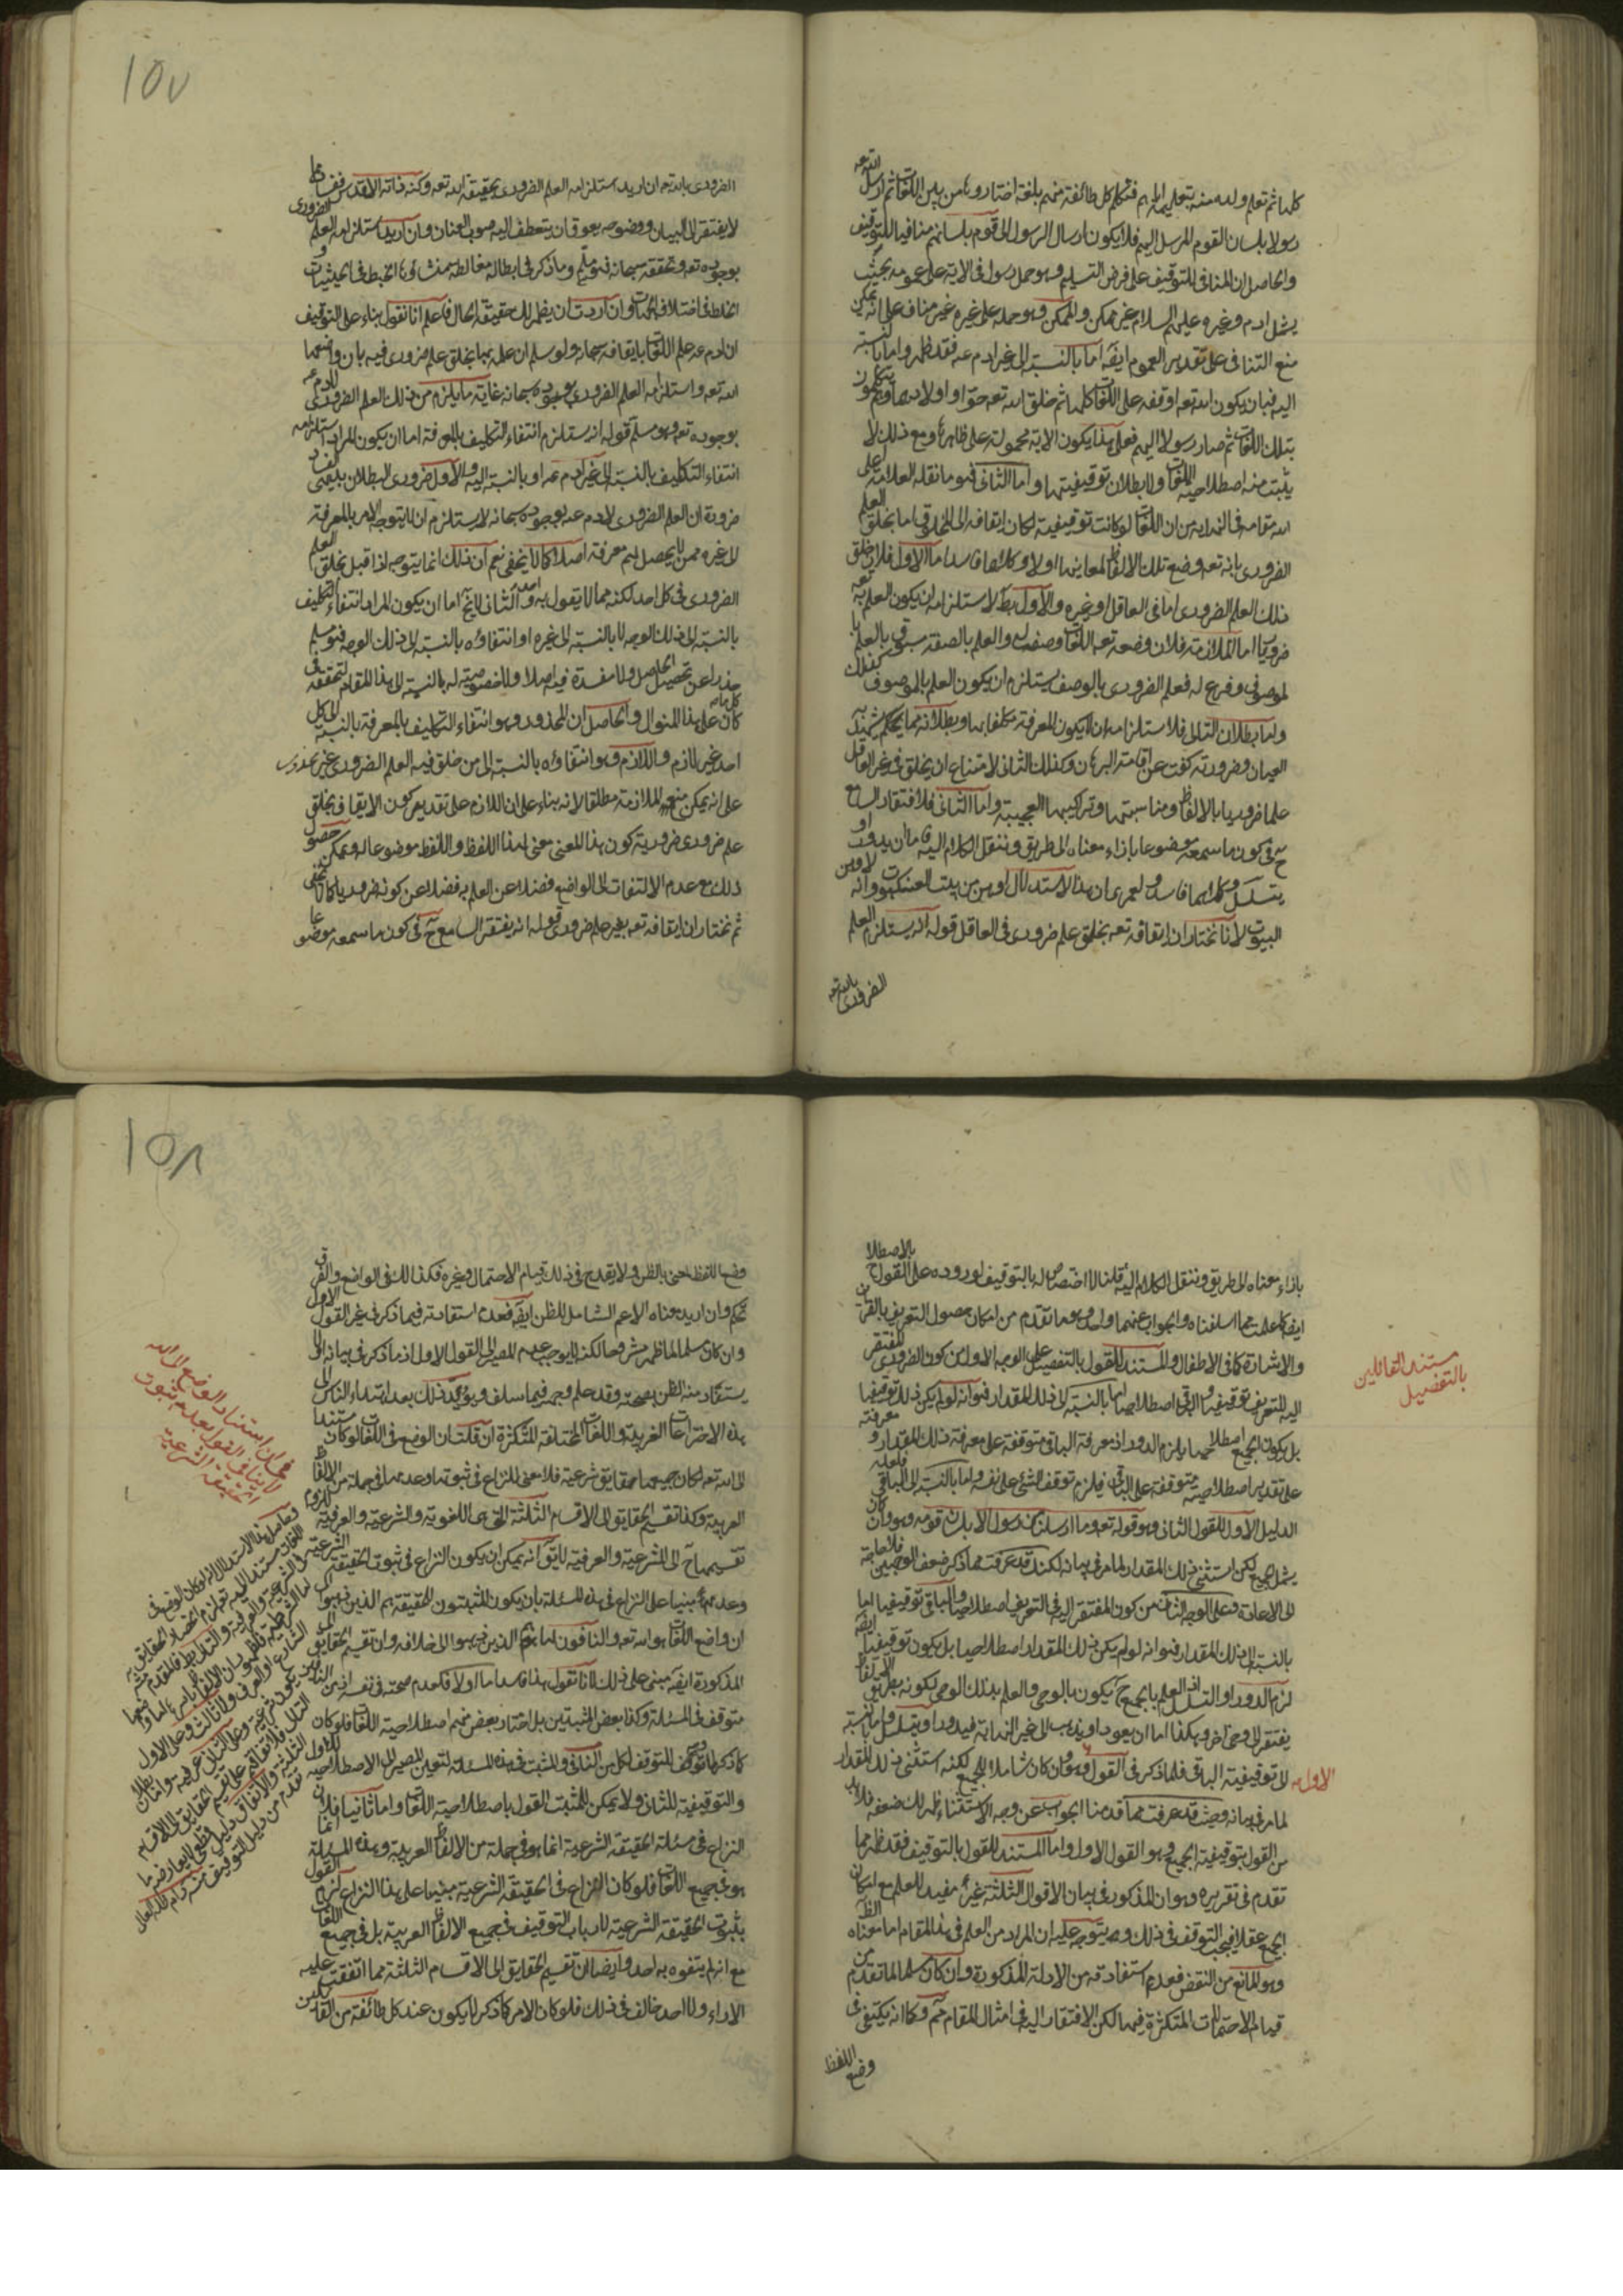 كلها ثم تعلم ولده منه بتعليمه اياهم فتكلم كل طائفة منهم بلغة اختاروها من بين اللغات ثم ارسل الله تعه
رسولا بلسان القوم المرسل اليهم فلا يكون ارسال الرسول الى قوم بلسانهم منافيا للتوقيف
والحاصل ان المنافى للتوقيف على فرض التسليم وهو حمل رسول فى الاية على عمومه بحيث
يشمل ادم وغيره عليهم السلام غير ممكن والممكن وهو حمله على غيره غير مناف على انه يمكن
منع التنافى على تقدير العموم ايضه اما بالنسبة الى غير ادم عه فقد ظهر واما بالنسبة
اليه فبان يكون الله تعه اوقفه على اللغات كلها ثم خلق الله تعه حوا واولادهما وهم يتكلمون
بتلك اللغات ثم صار رسولا اليهم فعلى هذا يكون الاية محمولة على ظاهرها ومع ذلك لا
يثبت منه اصطلاحية اللغات ولا بطلان توقيفيتها واما الثانى فهو ما نقله العلامة اعلى
الله مقامه فى النهاية من ان اللغات لو كانت توقيفية لكان ايقافه الى الخلق اما بخلق العلم
الضرورى بانه تعه وضع تلك الالفاظ لمعانيها او لا وكلاهما فاسد اما الاول فلان خلق
ذلك العلم الضرورى اما فى العاقل او غيره والاول بط لاستلزامه ان يكون العلم به تعه
ضروريا اما الملازمة فلان وضعه تعه اللغات وصف له والعلم بالصفة مسبوق بالعلم با
لموصوف وفرع له فعلم الضرورى بالوصف يستلزم ان يكون العلم بالموصوف كذلك
واما بطلان التالى فلاستلزامه ان لا يكون المعرفة مكلفا بها وبطلانه مما يحكم بشهيدة
العيان وضرورته كفت عن اقامة البرهان وكذلك الثانى لامتناع ان يخلق فى غير العاقل
علما ضروريا بالالفاظ ومناسبتها وتراكيبها العجيبة واما الثانى فلافتقار السامع
ح فى كون ما سمعه موضوعا بازاء معناه الى طريق وننقل الكلام اليه فاما ان يدور او
يتسلسل وكلاهما فاسد ولعمرى ان هذا الاستدلال اوهن من بيت العنكبوت وانه لاوهن
البيوت لانا نختار ان ايقافه تعه بخلق علم ضرورى فى العاقل قوله انه يستلزم العلم
الضرورى بالله تعه
١٥٧
الضرورى بالله تعه ان اريد استلزامه العلم الضرورى بحقيقة الله تعه وكنه ذاته الاقدس ففساده مما
لا يفتقر الى البيان ووضوحه يعوق ان ينعطف اليه صوب العنان وان اريد استلزامه العلم الضرورى
بوجوده تعه وتحققه سبحانه فهو مسلم وما ذكر فى ابطاله مغالطة منشاؤها الخبط فى الحيثيات و
الخلط فى اختلاف الجهات وان اردت ان يظهر لك حقيقة الحال فاعلم انا نقول بناء على التوقيف
ان ادم عه علم اللغات بايقافه سبحانه ولو سلم ان علمه بها بخلق علم ضرورى فيه بان واضعها
الله تعه واستلزامه العلم الضرورى بوجوده سبحانه غاية ما يلزم من ذلك العلم الضرورى لادم عه
بوجوده تعه وهو مسلم قوله انه يستلزم انتفاء التكليف بالمعرفة اما ان يكون المراد استلزامه
انتفاء التكليف بالنسبة الى غير ادم عه او بالنسبة اليه والاول ضرورى البطلان بديهى الفساد
ضرورة ان العلم الضرورى لادم عه بوجوده سبحانه لا يستلزم ان لا يتوجه الامر بالمعرفة
لا غيره ممن لا يحصل لهم معرفته اصلا كما لا يخفى نعم ان ذلك انما يتوجه اذا قيل بخلق العلم
الضرورى فى كل احد لكنه مما لا يقول به احد والثانى لا يخ اما ان يكون المراد انتفاء التكليف
بالنسبة الى ذلك الوجه لا بالنسبة الى غيره او انتفاؤه بالنسبة الى ذلك الوجه فهو مسلم
حذرا عن تحصيل الحاصل ولا مفسدة فيه اصلا ولا خصوصية له بالنسبة الى هذا المقام لتحققه فى
كل ما كان على هذا المنوال والحاصل ان المحذور وهو انتفاء التكليف بالمعرفة بالنسبة الى كل
احد غير لازم واللازم وهو انتفاؤه بالنسبة الى من خلق فيه العلم الضرورى غير محذور
على انه يمكن منع الملازمة مطلقا لانه بناء على ان اللازم على تقدير كون الايقاف بخلق
علم ضرورى ضرورية كون هذا المعنى معنى لهذا اللفظ واللفظ موضوعا له ويمكن حصول
ذلك مع عدم الالتفات الى الواضع فضلا عن العلم به فضلا عن كونه ضروريا كما لا يخفى
ثم نختار ان ايقافه تعه بغير علم ضرورى قوله انه يفتقر السامع ح فى كون ما سمعه موضوعا
بازاء معناه الى طريق وننقل الكلام اليه قلنا لا اختصاص له بالتوقيف لوروده على القول بالاصطلاح
ايضا كما علمت مما اسلفناه والجواب عنهما واحد وهو ما تقدم من امكان حصول التعريف بالقراين
والاشارة كما فى الاطفال والمستند للقول بالتفصيل على الوجه الاول من كون الضرورى المفتقر
اليه للتعريف توقيفيا والباقى اصطلاحيا اما بالنسبة الى ذلك المقدار فهو انه لو لم يكن ذلك توقيفيا
بل يكون الجميع اصطلاحيا يلزم الدور اذ معرفة الباقى متوقفة على معرفة ذلك المقدار و معرفته
على تقدير اصطلاحيته متوقفة على الباقى فيلزم توقف الشئ على نفسه واما بالنسبة الى الباقى فلعله
الدليل الاول للقول الثانى وهو قوله تعه وما ارسلنا من رسول الا بلسان قومه وهو وان كان
يشمل الجميع لكن استثنى ذلك المقدار لما مر فى بيانه لكنك قد عرفت مما ذكر ضعف الوجهين فلا حاجة
الى الاعادة وعلى الوجه الثانى من كون المفتقر اليه فى التعريف اصطلاحيا والباقى توقيفيا اما
بالنسبة الى ذلك المقدار فهو انه لو لم يكن ذلك المقدار اصطلاحيا بل يكون توقيفيا ايضه
لزم الدور او التسلسل اذ العلم بالجميع ح يكون بالوحى والعلم بذلك الوحى لكونه بطريق الالفاظ
يفتقر الى وحى اخر وهكذا اما ان يعود او يذهب الى غير النهاية فيدور او يتسلسل واما بالنسبة
الى توقيفية الباقى فلما ذكر فى القول الاول وهو وان كان شاملا للجميع لكنه استثنى ذلك المقدار
لما مر فى بيانه وحيث قد عرفت مما قدمنا الجواب عن وجه الاستثناء ظهر لك ضعفه فلا بد
من القول بتوقيفية الجميع وهو القول الاول واما المستند للقول بالتوقف فقد ظهر مما
تقدم فى تقريره وهو ان المذكور فى بيان الاقوال الثلثة غير مفيد للعلم مع امكان
الجميع عقلا فيجب التوقف فى ذلك ويتوجه عليه ان المراد من العلم فى هذا المقام اما معناه الظ
وهو المانع من النقض فعدم استفادته من الادلة المذكورة وان كان مسلما لما تقدم من
قيام الاحتمالات المتكثرة فيها لكن الافتقار اليه فى امثال المقام مم وكما انه يكتفى فى
وضع اللفظ
مستند القائلين
بالتفصيل
الاول
١٥٨
وضع اللفظ لمعنى بالظن ولا يقدح فى ذلك قيام الاحتمال وغيره فكذا لك فى الواضع والفرق
تحكم وان اريد معناه الاعم الشامل للظن ايضه فعدم استفادته فيما ذكر فى غير القول الاول
وان كان مسلما لما ظهر مشروحا لكنه لا يوجب عدم المصير الى القول الاول اذ ما ذكر فى بيانه
يستفاد منه الظن بصحته وقد علم وجهه فيما سلف ويؤيد ذلك بعد اهتداء الناس الى
هذه الاختراعات الغريبة واللغات المختلفة المتكثرة ان قلت ان الوضع فى اللغات لو كان مستندا
الى الله تعه لكان جميعها حقايق شرعية فلا معنى للنزاع فى ثبوتها وعدمها فى جملة من الالفاظ
العربية وكذا تقسيم الحقايق الى الاقسام الثلثة التى هى اللغوية والشرعية والعرفية للزوم
تقسيمها ح الى الشرعية والعرفية لا يقو انه يمكن ان يكون النزاع فى ثبوت الحقيقة الشرعية
وعدمه مبنيا على النزاع فى هذه المسئلة بان يكون المثبتون للحقيقة هم الذين ذهبوا الى
ان واضع اللغات هو الله تعه والنافون لها هم الذين ذهبوا الى خلافه وان تقسيم الحقايق الى
المذكورة ايضه مبنى على ذلك لانا نقول هذا فاسد اما اولا فلعدم صحته فى نفسه اذ من النافين
متوقف فى المسئلة وكذا بعض المثبتين بل اختار بعض منهم اصطلاحية اللغات فلو كان
كما ذكر لما توقف المتوقف لكل من النافى والمثبت فى هذه المسئلة لتعين المصير الى الاصطلاحية للاول
والتوقيفية للثانى ولا يمكن للمثبت القول باصطلاحية اللغات واما ثانيا فلان
النزاع فى مسئلة الحقيقة الشرعية انما هو فى جملة من الالفاظ العربية وهذه المسئلة انما
هو فى جميع اللغات فلو كان النزاع فى الحقيقة الشرعية مبنيا على هذا النزاع لزم القول
بثبوت الحقيقة الشرعية لارباب التوقيف فى جميع الالفاظ العربية بل فى جميع اللغات
مع انه لم يتفوه به احد وايضا ان تقسيم الحقايق الى الاقسام الثلثة مما اتفقت عليه
الاراء ولا احد خالف فى ذلك فلو كان الامر كما ذكر لا يكون عند كل طائفة من القائلين
فى ان استناد الوضع الى الله
لا ينافى القول بعدم ثبوت
الحقيقة الشرعية